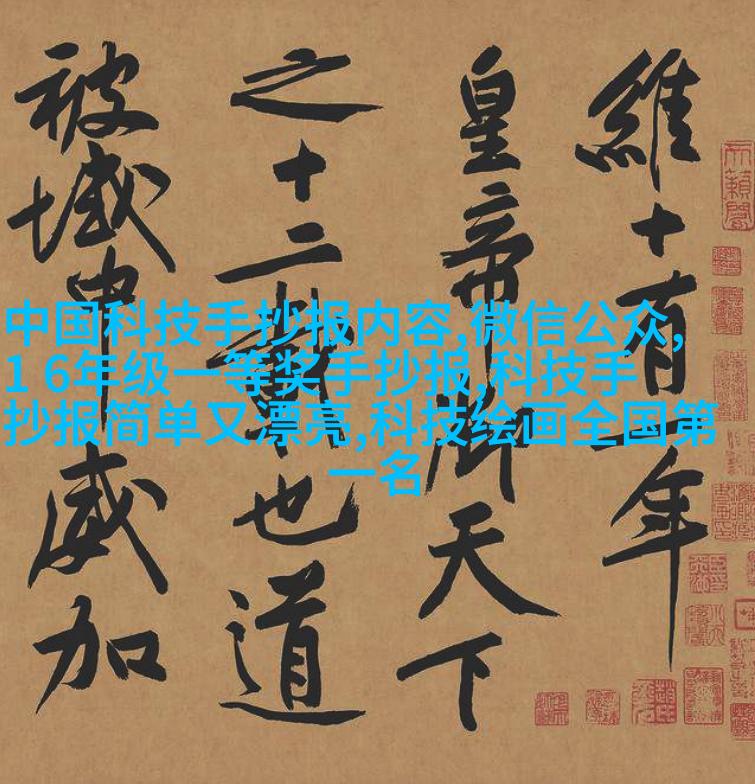 維十有一年
皇帝御天下
之十二載也道
被域中威加
中国科技手抄报内容,微信公众,
1 6年级一等奖手抄报,科技手
抄报简单又漂亮,科技绘画全国第
一名